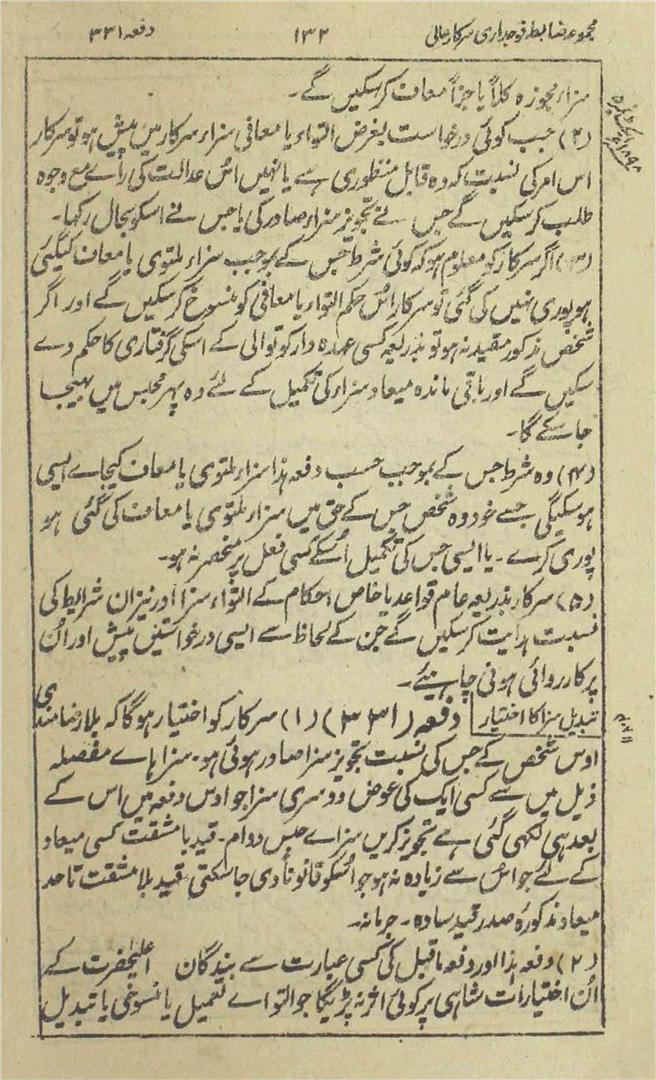 مجموعہ ضابطہ فوجداری سرکار عالی ۱۳۲ دفعہ ۳۳۱
سزاء مجوزہ کلاً یا جزاً معاف کرسکیں گے۔
(۲) جب کوئی درخواست بغرض التواء یا معافی سزاء سرکار میں پیش ہو تو سرکار
اس امر کی نسبت کہ وہ قابل منظوری ہے یا نہیں اُس عدالت کی رائے مع وجوہ
طلب کرسکیں گے جس نے تجویز سزاء صادر کی یا جس نے اسکو بحال رکہا۔
(۳) اگر سرکار کو معلوم ہو کہ کوئی شرط جس کے بموجب سزاء ملتوی یا معاف کیگئی
ہو پوری نہیں کی گئی تو سرکار اُس حکم التواء یا معافی کو منسوخ کرسکیں گے اور اگر
شخص مذکور مقید نہ ہو تو بذریعہ کسی عہدہ دار کوتوالی کے اسکی گرفتاری کا حکم دے
سکیں گے اور باقی ماندہ میعاد سزاء کی تکمیل کے لئے وہ پہر محبس میں بہیجا
جاسکے گا۔
(۴) وہ شرط جس کے بموجب حسب دفعہ ہذا سزاء ملتوی یا معاف کیجاے ایسی
ہوسکیگی جسے خود وہ شخص جس کے حق میں سزاء ملتوی یا معاف کی گئی ہو
پوری کرے۔ یا ایسی جس کی تکمیل اُسکے کسی فعل پر منحصر نہ ہو۔
(۵) سرکار بذریعہ عام قواعد یا خاص احکام کے التواء سزا اور نیز ان شرایط کی
نسبت ہدایت کرسکیں گے جن کے لحاظ سے ایسی درخواستیں پیش اور اُن
پر کارروائی ہونی چاہیئے۔
تبدیل سزا کا اختیار دفعہ (۳۳۱) (۱) سرکار کو اختیار ہوگا کہ بلا رضامندی
اوس شخص کے جس کی نسبت تجویز سزا صادر ہوئی ہو۔ سزا ہاے مفصلہ
ذیل میں سے کسی ایک کی عوض دوسری سزا جو اوس دفعہ میں اس کے
بعد ہی لکھی گئی ہے تجویز کریں سزاے حبس دوام۔ قید بامشقت کسی میعاد
کے لئے جو اس سے زیادہ نہ ہو جو اُسکو قانوناً دی جاسکتی۔ قید بلا مشقت تاحد
میعاد مذکورہ صدر قید سادہ۔ جرمانہ۔
(۲) دفعہ ہذا اور دفعہ ماقبل کی کسی عبارت سے بندگان اعلیحضرت کے
اُن اختیارات شاہی پر کوئی اثر نہ پڑیگا جو التواے تعمیل یا منسوخی یا تبدیل